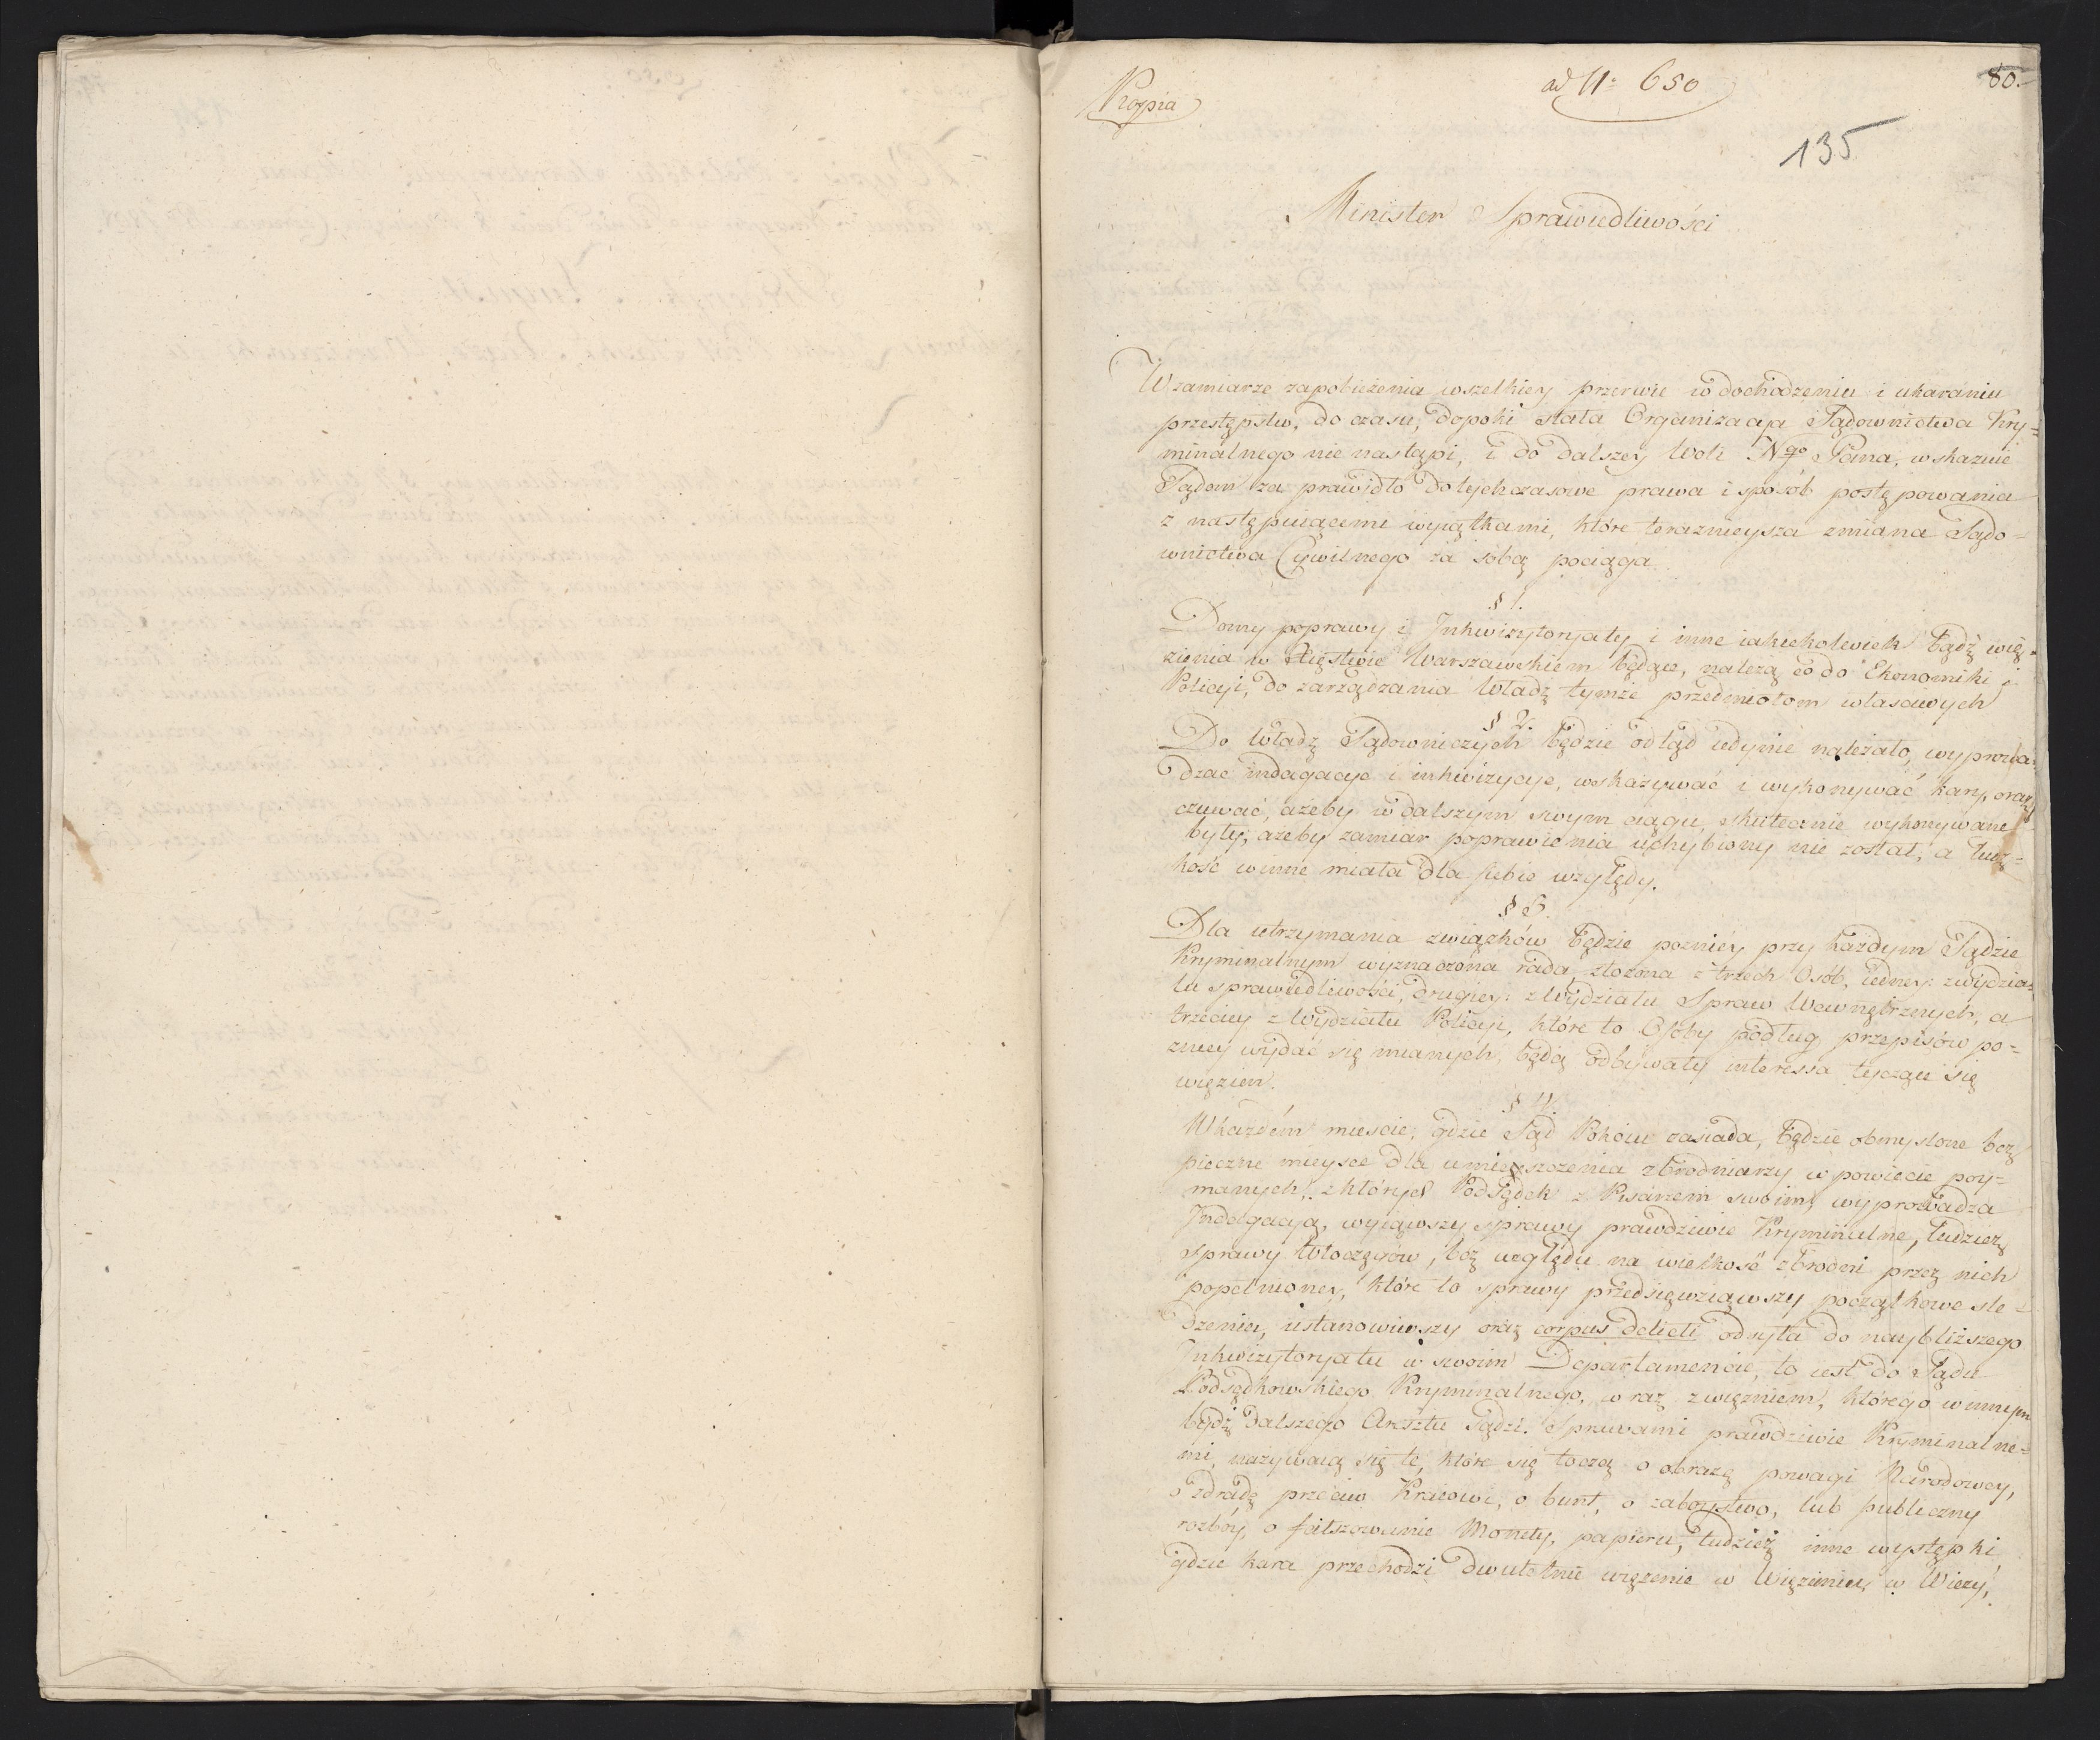 Kopia
ad N: 650
80.
135
Minister Sprawiedliwości
W zamiarze zapobieżenia wszelkiey przerwie w dochodzeniu i ukaraniu
przestępstw, do czasu, dopoki stała Organizacyja Sądownictwa Kry=
minalnego nie nastąpi, i do dalszey Woli Ngo Pana, wskazuie
Sądom za prawidło dotychczasowe prawa i sposób postępowania
z następuiącemi wyiątkami, które teraznieysza zmiana Sądo=
wnictwa Cywilnego za sobą pociąga.
§ 1.
Domy poprawy i Inkwizytoryaty i inne iakiekolwiek bądź wię=
zienia w Xięstwie Warszawskiem będące, należą co do Ekonomiki i
Policyi, do zarządzania Władz tymże przedmiotom właściwych
§ 2.
Do Władz Sądowniczych będzie odtąd iedynie należało, wyprowa=
dzac indagacye i inkwizycye, wskazywać i wykonywać kary, oraz
czuwać, ażeby w dalszym swym ciągu, skutecznie wykonywane
były, ażeby zamiar poprawienia uchybiony nie został, a ludz=
kość winne miała dla siebie względy.
§ 3.
Dla utrzymania związków będzie pozniey przy każdym Sądzie
Kryminalnym wyznaczona rada, złożona z trzech Osób, iedney: z wydzia=
łu sprawiedliwości, drugiey: z Wydziału Spraw Wewnętrznych, a
trzeciey z Wydziału Policyi, które to Osoby podług przepisów po=
zniey wydać się mianych, będą odbywały interessa tyczące się
więzien.
§ 4.
W każdém mieście, gdzie Sąd Pokoiu zasiada, będzie obmyślone bez
pieczne mieysce dla umieszczenia zbrodniarzy w powiecie poy=
manych, z których Podsędek z Pisarzem swoim, wyprowadza
Indagacyą, wyiąwszy sprawy prawdziwie Kryminalne, tudzież
sprawy Włoczęgów, bez względu na wielkość zbrodni przez nich
popełnioney, które to sprawy przedsięwziąwszy początkowe śle=
dzenia, ustanowiwszy oraz corpus delicti odsyła do naybliższego
Inkwizytoryatu w swoim Departamencie, to iest do Sądu
Podsędkowskiego Kryminalnego, wraz z więzniem, którego winnym
bydź dalszego Aresztu sądzi. Sprawami prawdziwie Kryminalne=
mi, nazywaią się te, które się toczą o obrazę powagi Narodowey,
o zdradę przeciw Kraiowi, o bunt, o zaboystwo, lub publiczny
rozbóy, o fałszowanie Monety, papieru, tudzież inne występki
gdzie kara przechodzi dwuletnie więzenie w Więzieniu, w Wieży,